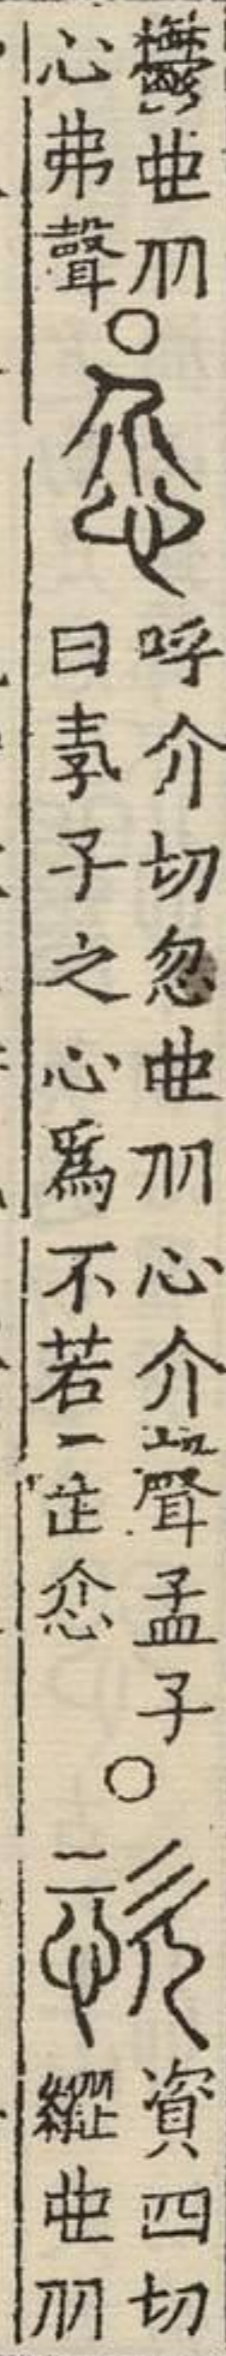 鬱也从
心弗聲
○
呼介切忽也从心介聲孟子
曰孝子之心爲不若是
○
恣
資四切
縱也从